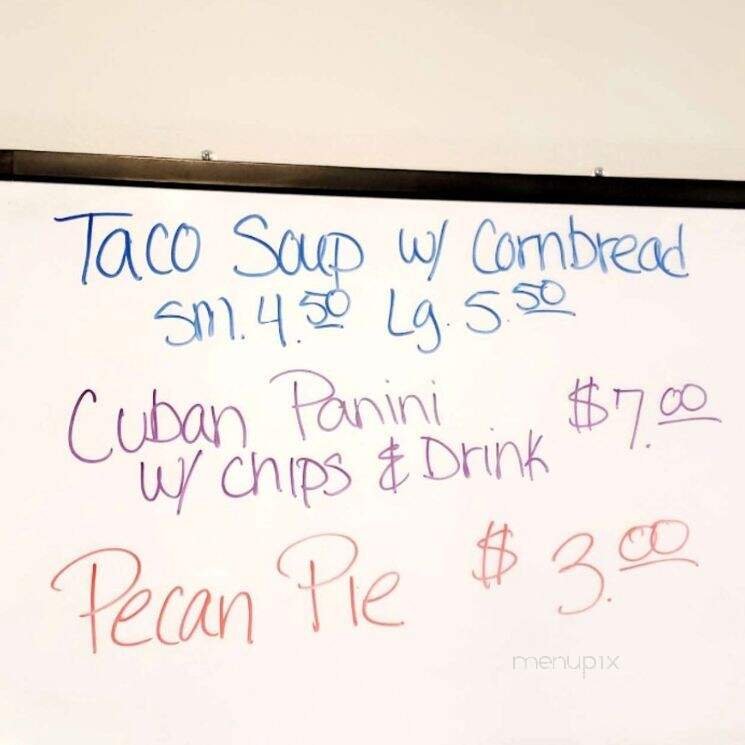 Taco Soup w/ Cornbread
Sm. 4.50 Lg. 5.50
Cuban Panini $7.00
w/ chips & Drink
Pecan Pie $3.00
menupix